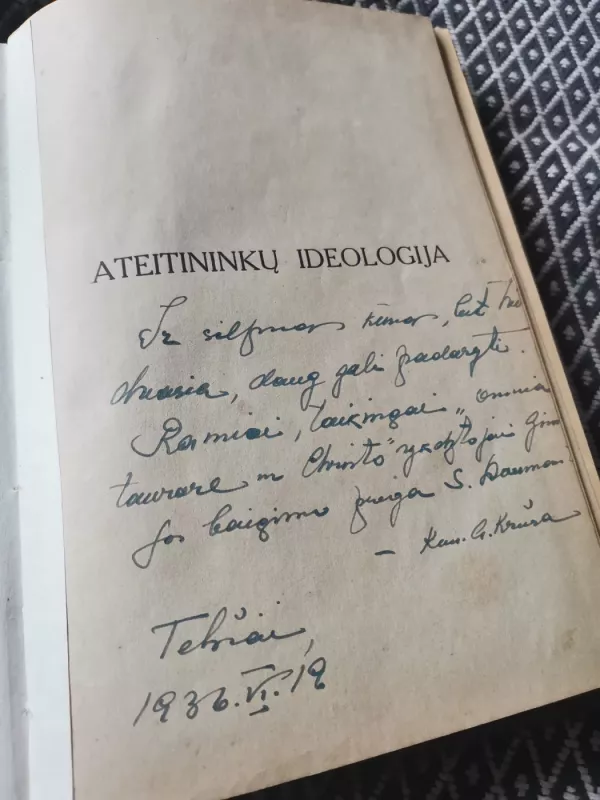 ATEITININKŲ IDEOLOGIJA
Ir silpnas kūnas, bet
dvasia, daug gali padaryti.
Ramiai, taikingai „omnia
taurare in Christo" vykdytojai
baigimo proga S.
– Kun. G. Krūša
Telšiai,
1936.VI.19